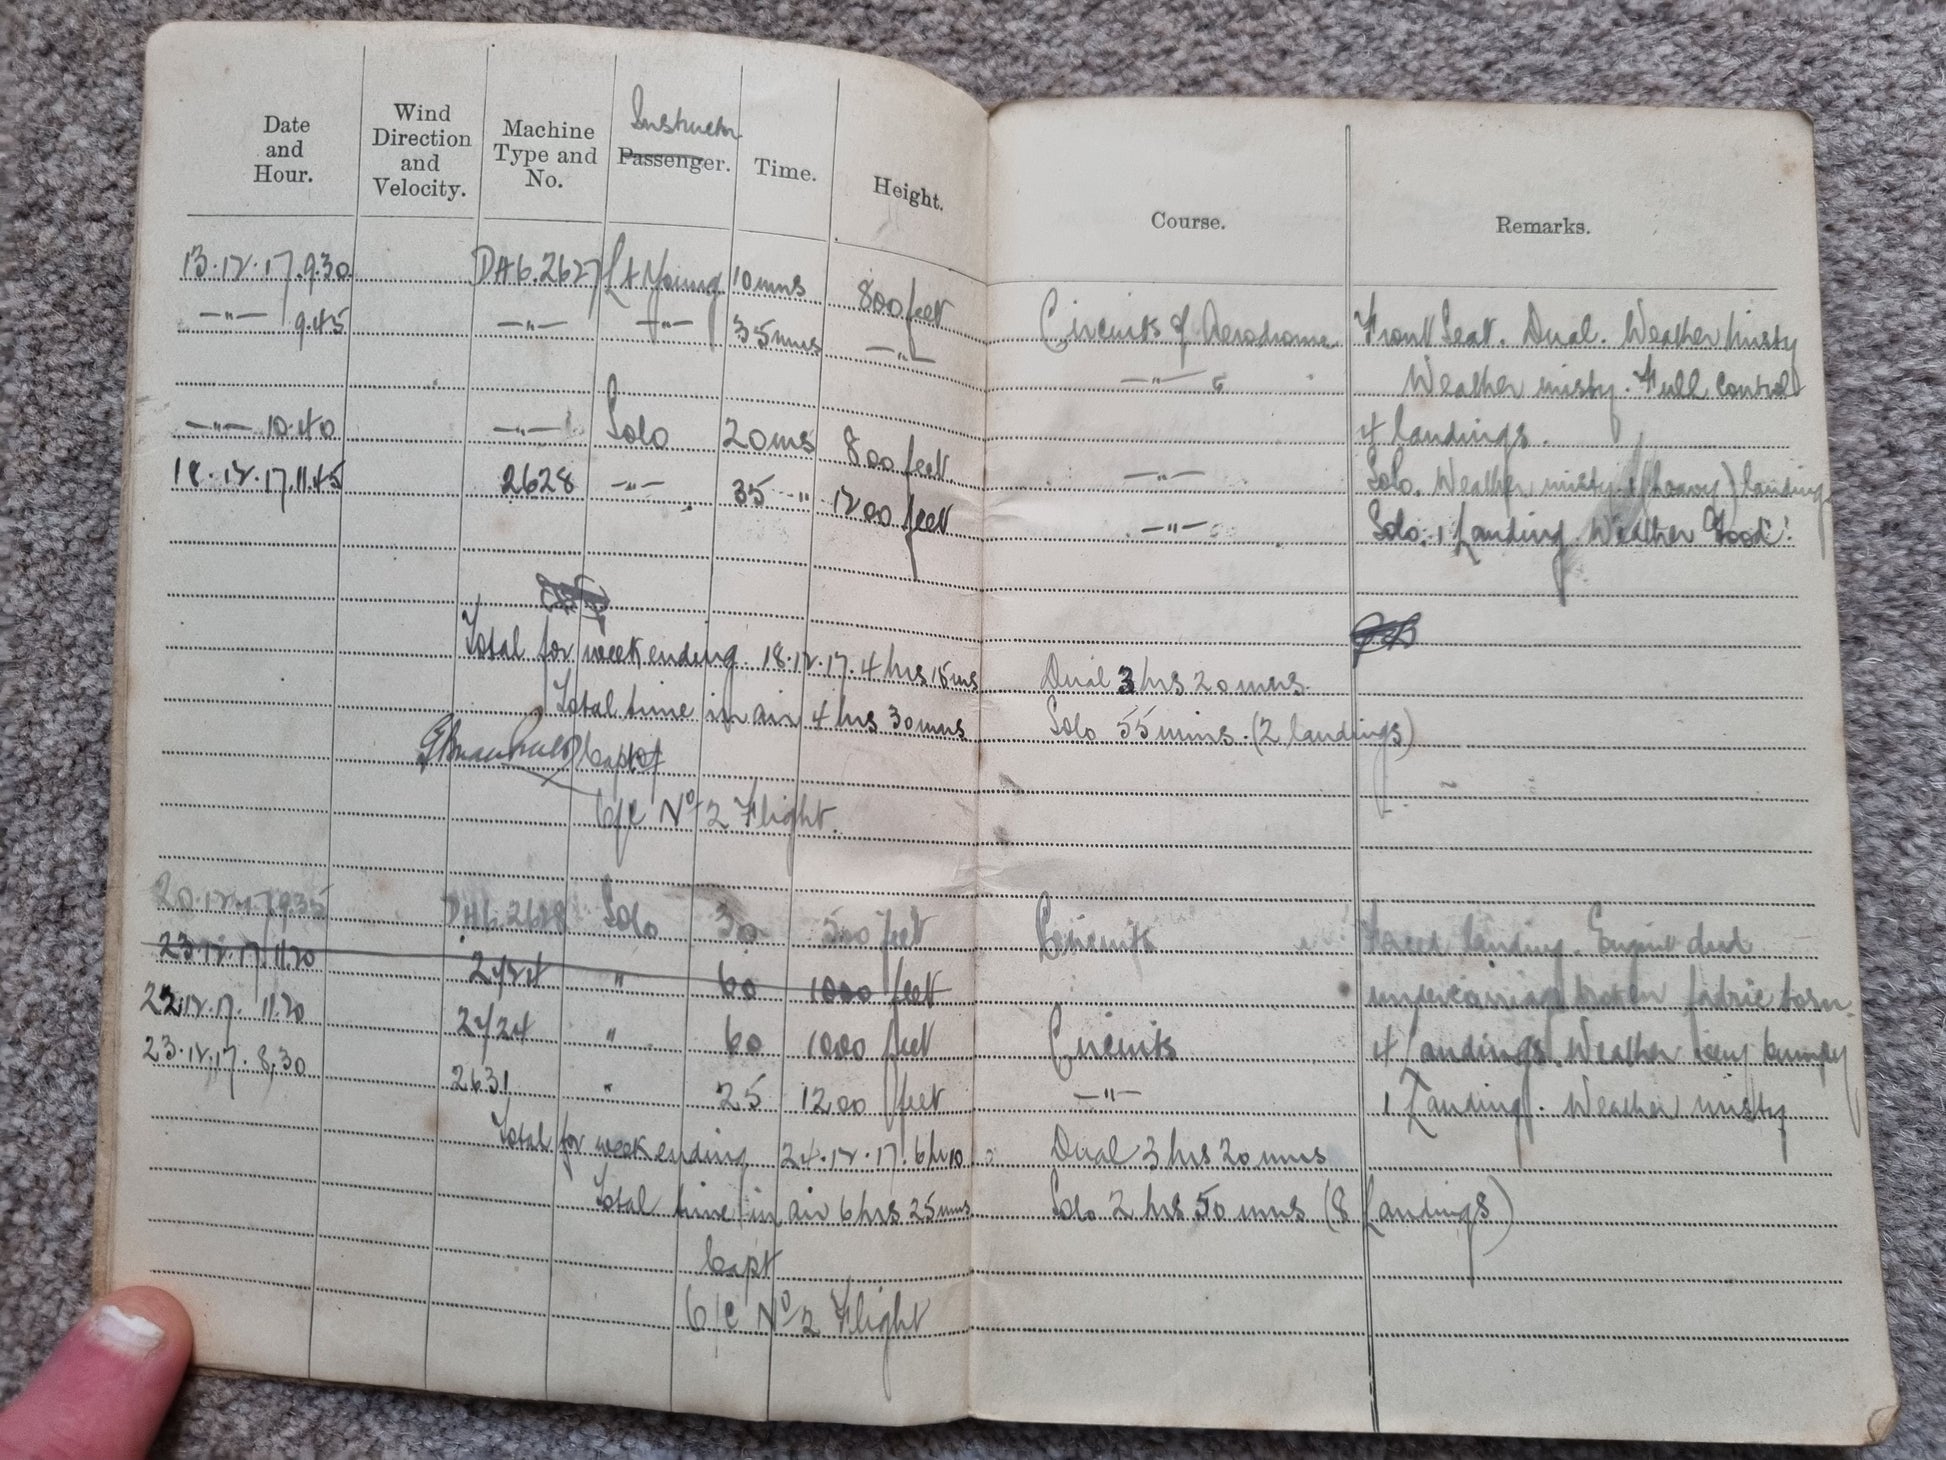 Date and Hour. Wind Direction and Velocity. Machine Type and No. Instructor Passenger. Time. Height. Course. Remarks.
13.12.17. 9.30. DH6.2627 Lt Young 10 mns 800 feet Circuits of Aerodrome Front Seat. Dual. Weather Misty
—"— 9.45 —"— —"— 35 mns —"— —"— Weather misty. Full control
4 landings.
—"— 10.40 —"— Solo 20 ms 800 feet —"— Solo. Weather misty 1 (heavy) landing
18.12.17. 11.45 2628 —"— 35 —"— 1200 feet —"— Solo. 1 Landing. Weather Good!
Total for week ending 18.12.17. 4 hrs 15 mns Dual 3 hrs 20 mns.
Total time in air 4 hrs 30 mns Solo 55 mins. (2 landings)
Capt
C/C No 2 Flight.
20.12.17 9.35 DH6.2628 Solo 30 500 feet Circuits Forced landing. Engine dud
23.12.17. 11.20 2724 " 60 1000 feet undercarriage broken fabric torn.
22.12.17. 11.20 2724 " 60 1000 feet Circuits 4 Landings. Weather very bumpy
23.12.17. 8.30 2631 " 25 1200 feet —"— 1 Landing. Weather misty
Total for week ending 24.12.17. 6 hrs 10 Dual 3 hrs 20 mns
Total time in air 6 hrs 25 mns Solo 2 hrs 50 mns (8 Landings)
Capt
C/C No 2 Flight